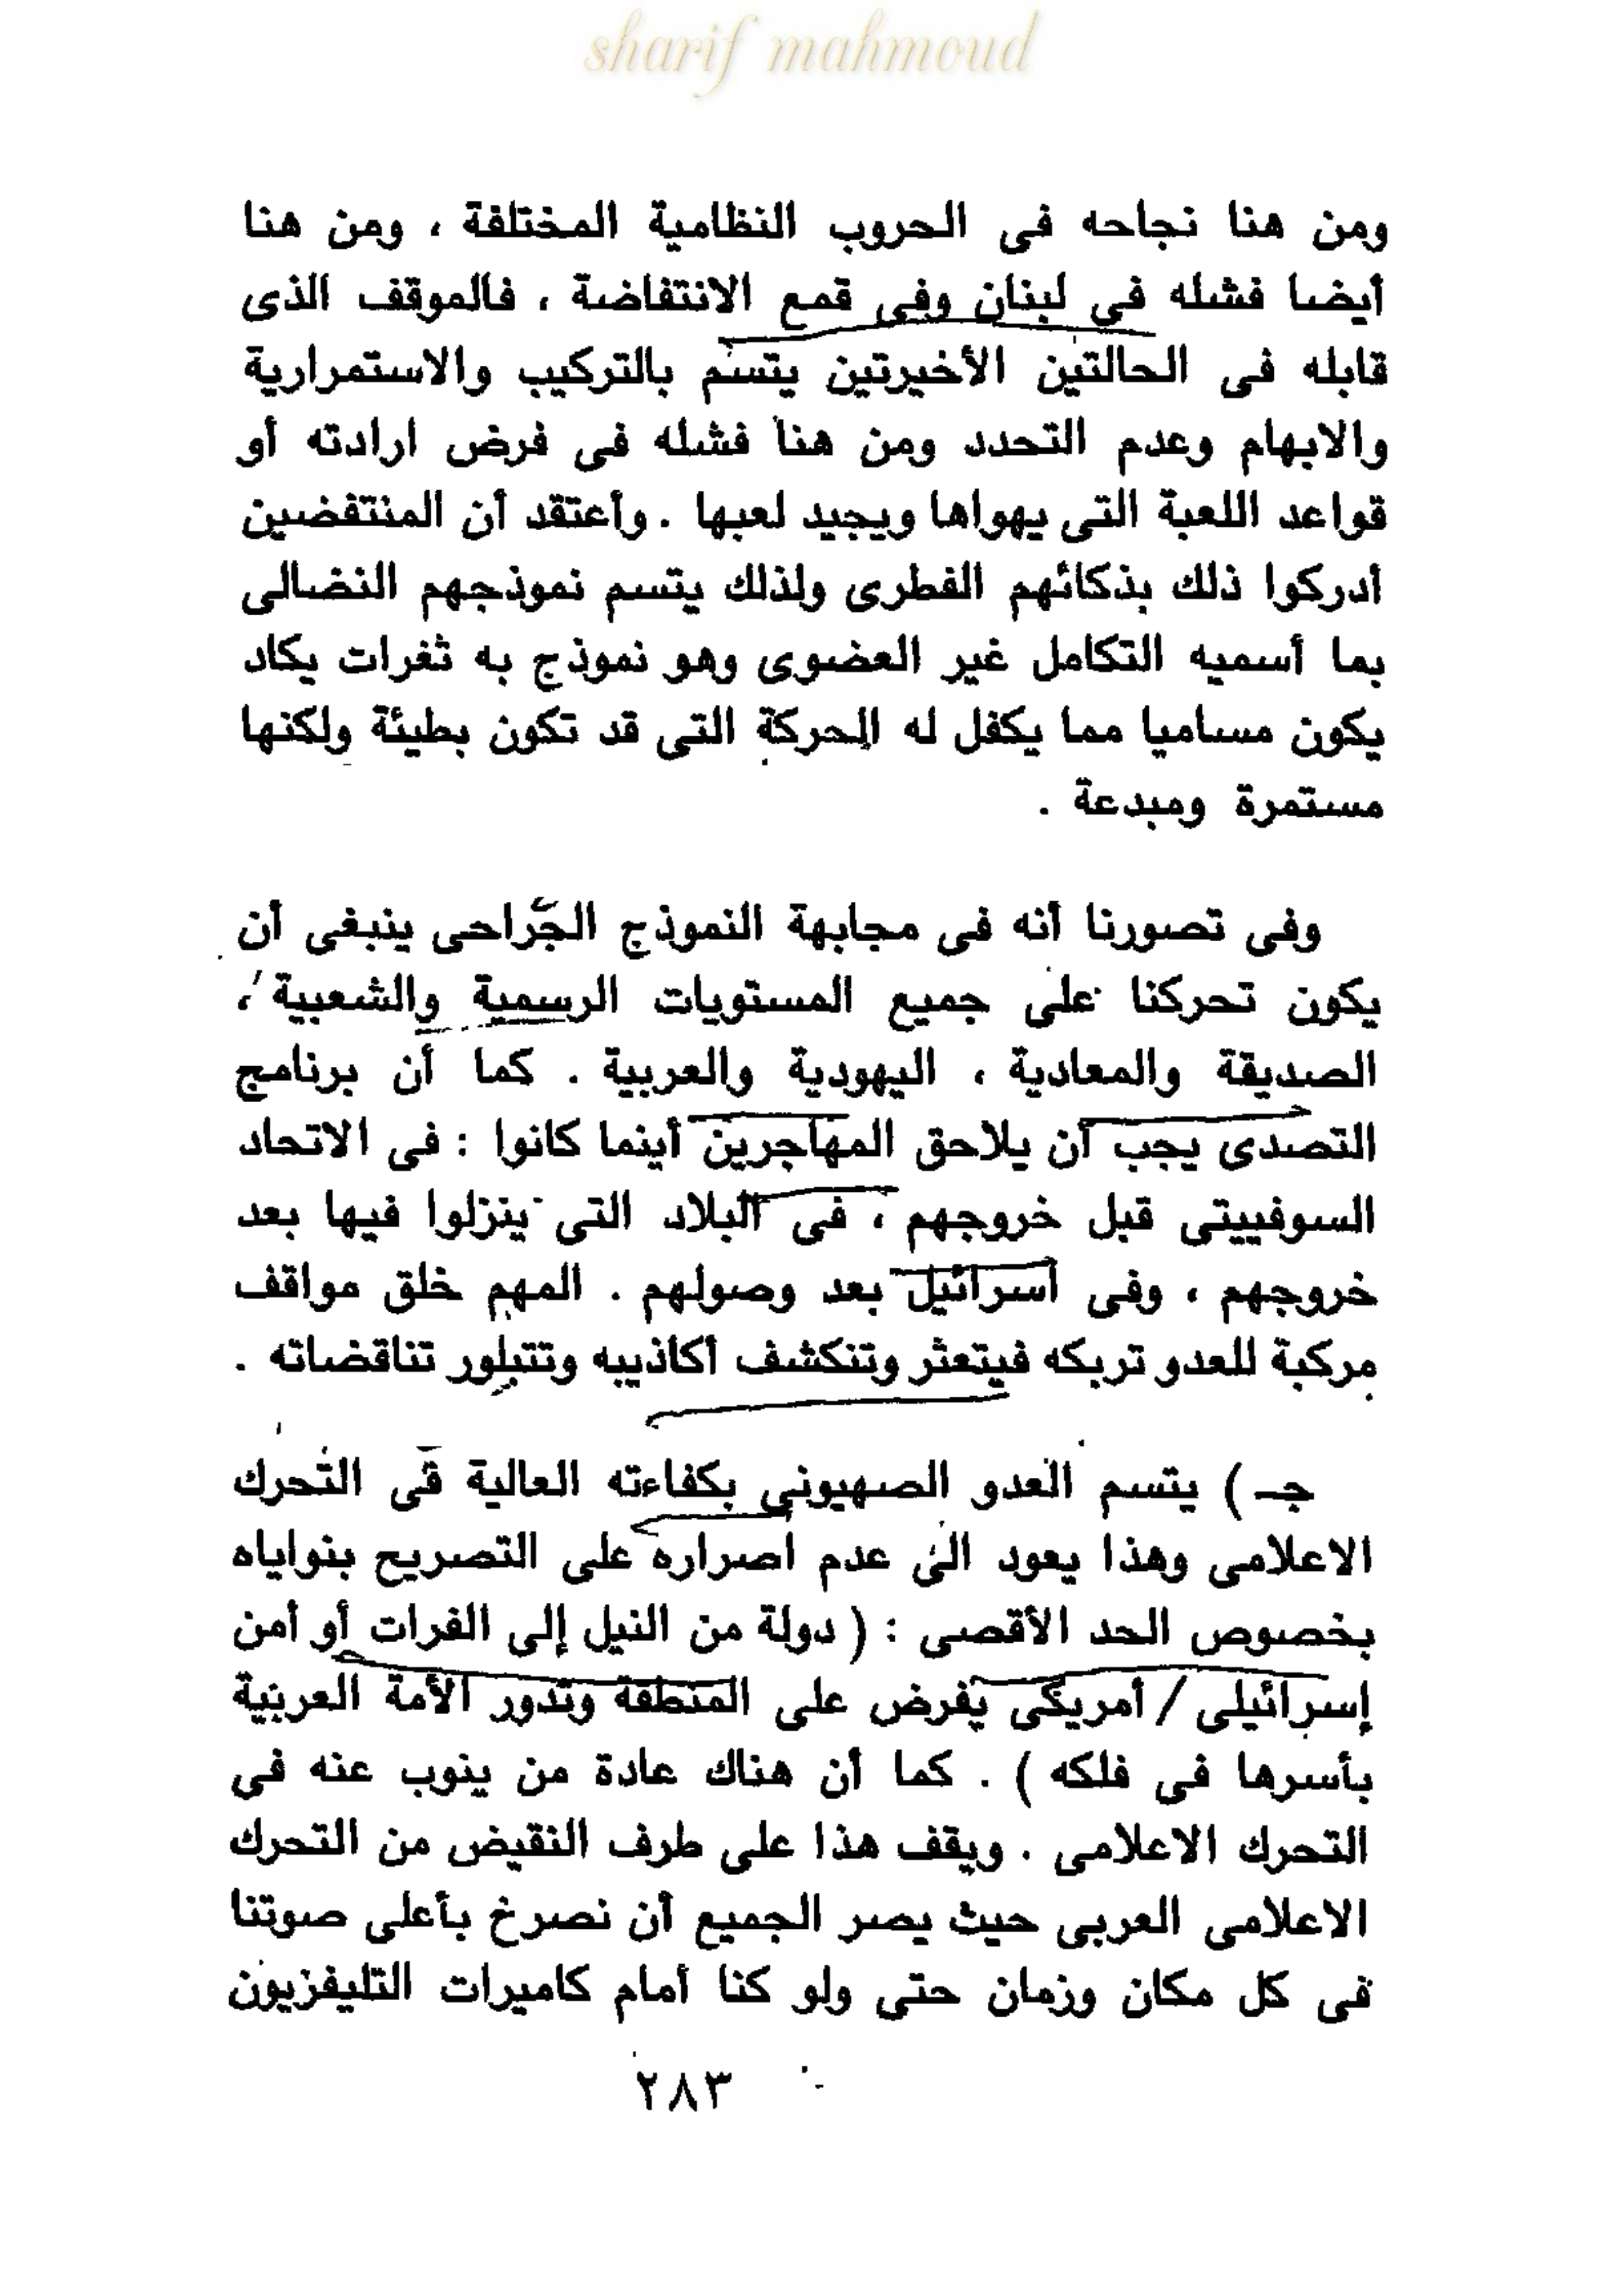 sharif mahmoud
ومن هنا نجاحه فى الحروب النظامية المختلفة ، ومن هنا
أيضا فشله في لبنان وفى قمع الانتفاضة ، فالموقف الذى
قابله فى الحالتين الأخيرتين يتسم بالتركيب والاستمرارية
والابهام وعدم التحدد ومن هنا فشله فى فرض ارادته أو
قواعد اللعبة التى يهواها ويجيد لعبها . وأعتقد أن المنتفضين
أدركوا ذلك بذكائهم الفطرى ولذلك يتسم نموذجهم النضالى
بما أسميه التكامل غير العضوى وهو نموذج به ثغرات يكاد
يكون مساميا مما يكفل له الحركة التى قد تكون بطيئة ولكنها
مستمرة ومبدعة .
وفى تصورنا أنه فى مجابهة النموذج الجراحى ينبغى أن
يكون تحركنا على جميع المستويات الرسمية والشعبية ،
الصديقة والمعادية ، اليهودية والعربية . كما أن برنامج
التصدى يجب أن يلاحق المهاجرين أينما كانوا : فى الاتحاد
السوفييتى قبل خروجهم ، فى البلاد التى ينزلوا فيها بعد
خروجهم ، وفى اسرائيل بعد وصولهم . المهم خلق مواقف
مركبة للعدو تربكه فيتعثر وتنكشف أكاذيبه وتتبلور تناقضاته .
جـ ) يتسم العدو الصهيونى بكفاءته العالية فى التحرك
الاعلامى وهذا يعود الى عدم اصراره على التصريح بنواياه
بخصوص الحد الأقصى : ( دولة من النيل إلى الفرات أو أمن
إسرائيلى / أمريكى يفرض على المنطقة وتدور الأمة العربية
بأسرها فى فلكه ) . كما أن هناك عادة من ينوب عنه فى
التحرك الاعلامى . ويقف هذا على طرف النقيض من التحرك
الاعلامى العربى حيث يصر الجميع أن نصرخ بأعلى صوتنا
فى كل مكان وزمان حتى ولو كنا أمام كاميرات التليفزيون
٢٨٣